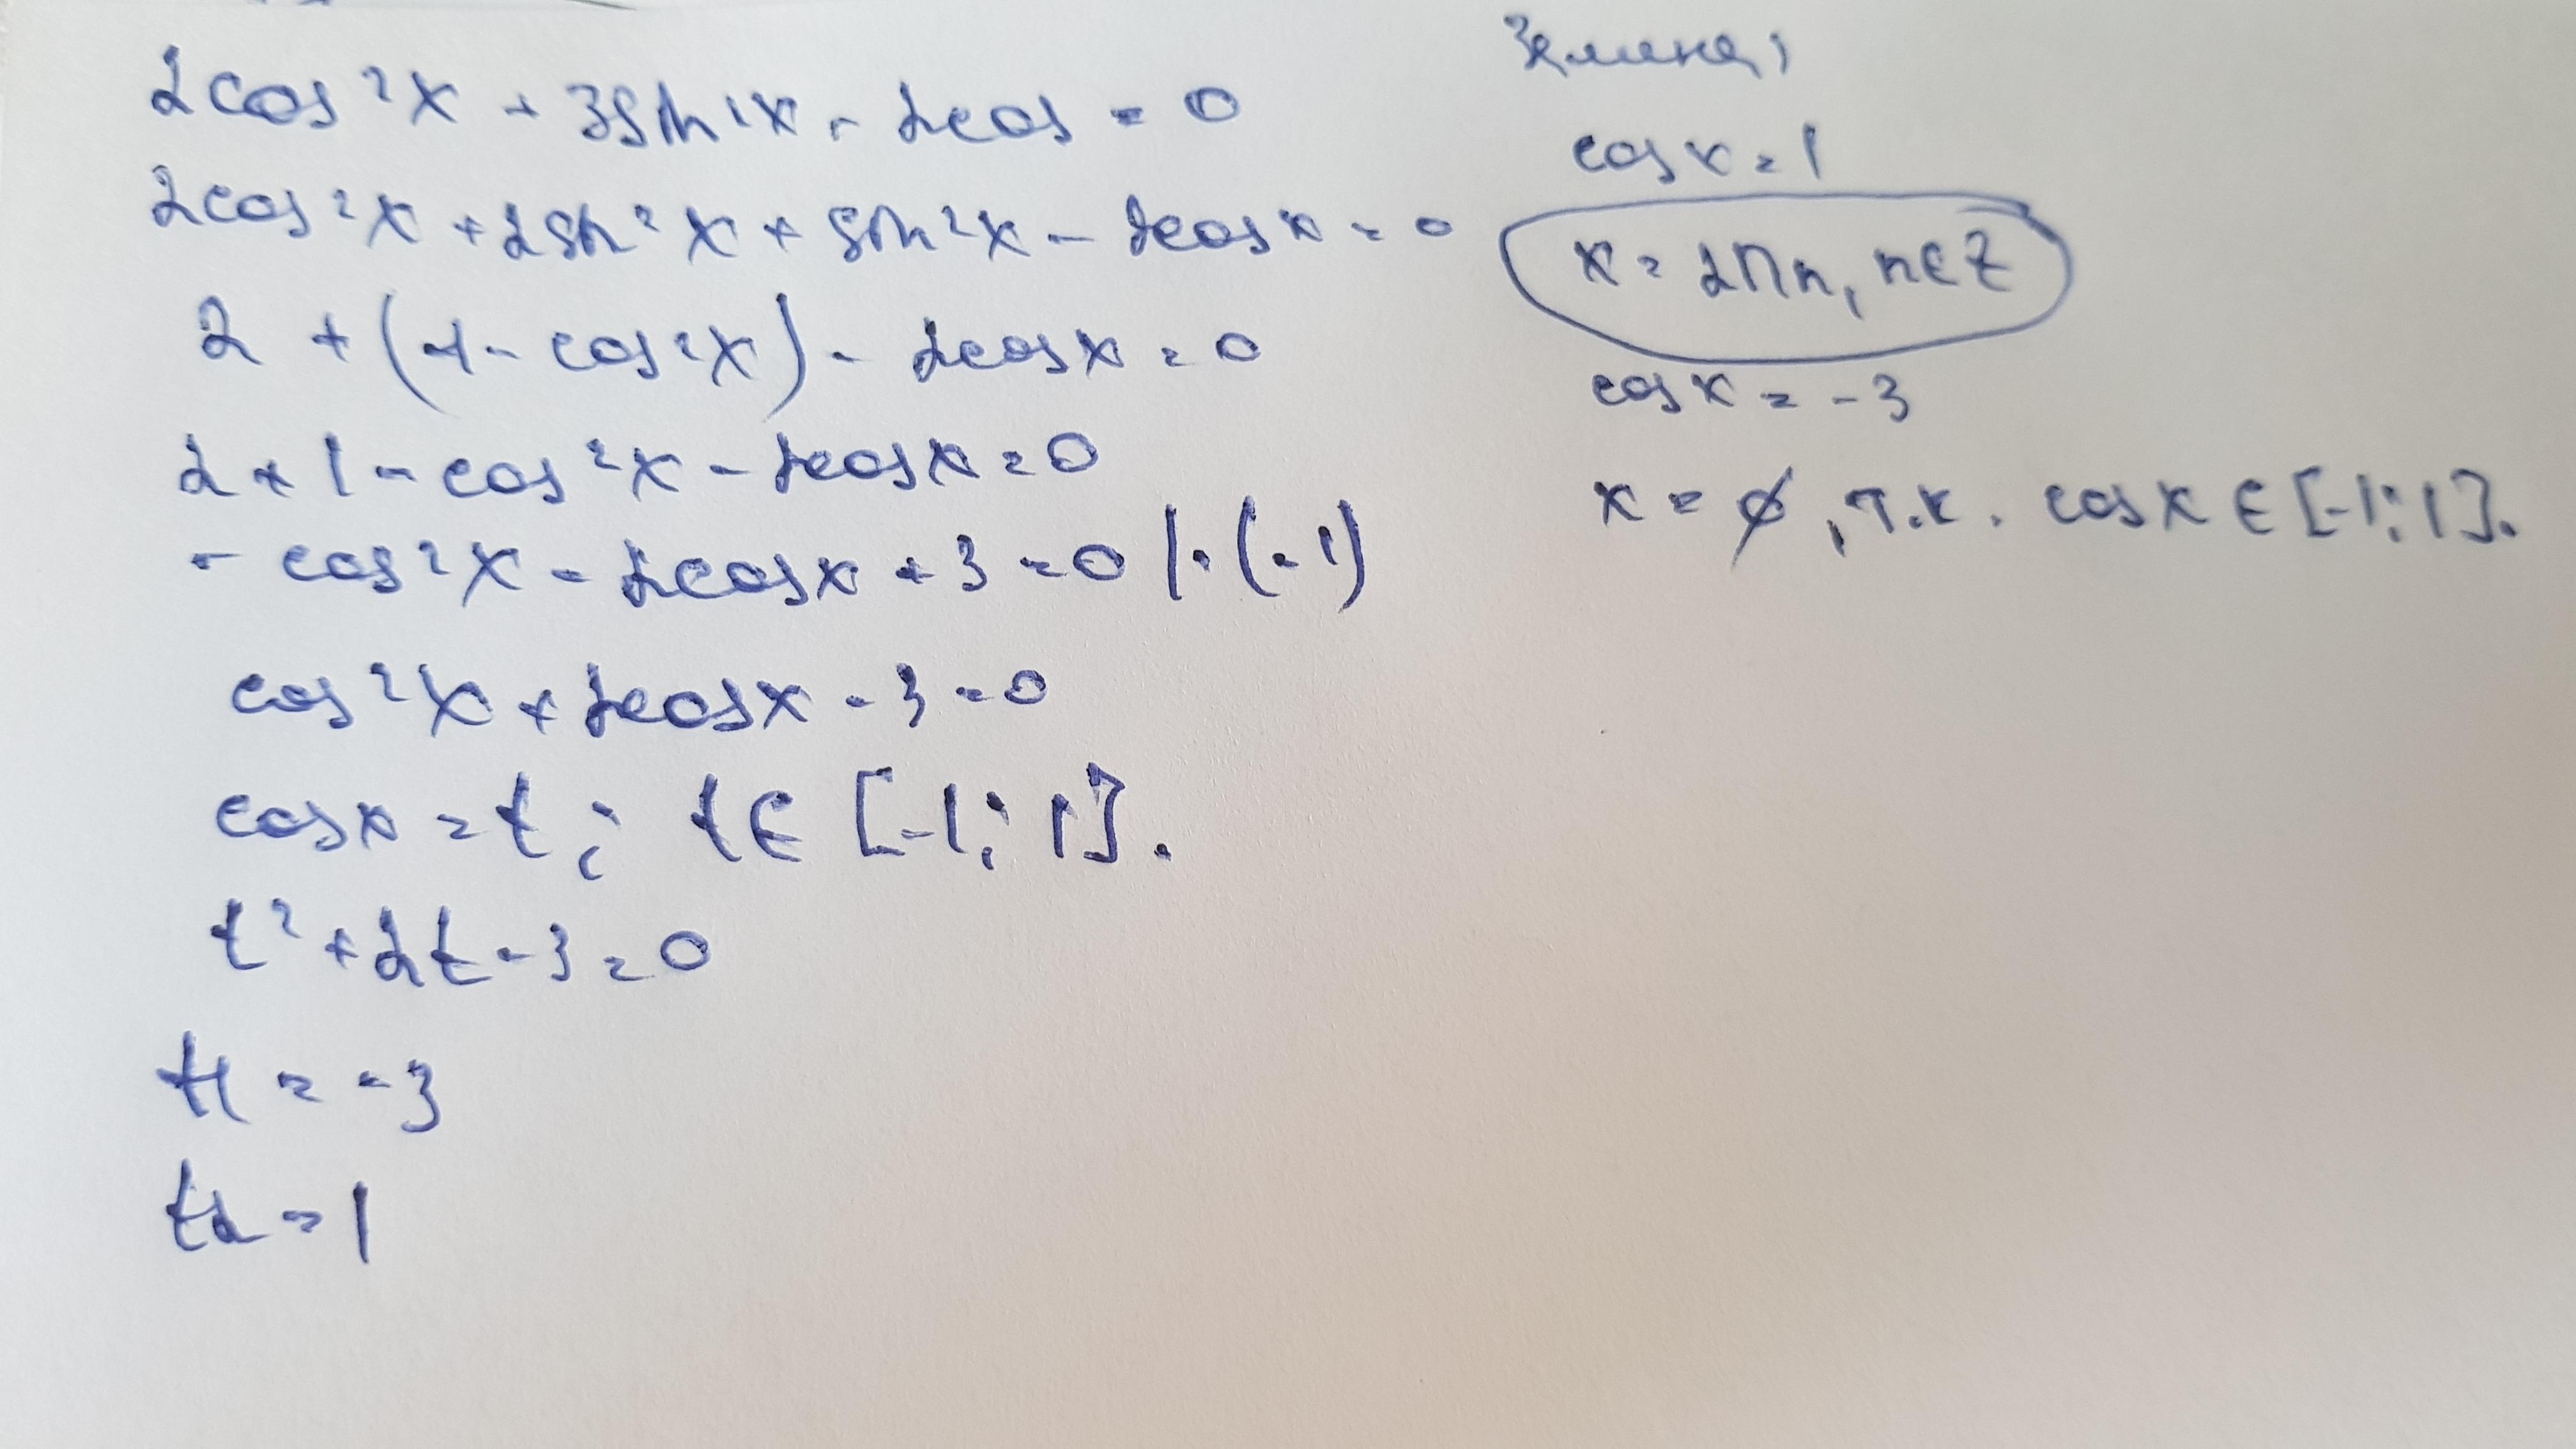 2cos²x + 3sin²x - 2cos = 0
2cos²x + 2sin²x + sin²x - 2cosx = 0
2 + (1 - cos²x) - 2cosx = 0
2 + 1 - cos²x - 2cosx = 0
- cos²x - 2cosx + 3 = 0 |·(-1)
cos²x + 2cosx - 3 = 0
cosx = t; t ∈ [-1; 1].
t² + 2t - 3 = 0
t1 = -3
t2 = 1
Замена;
cosx = 1
x = 2Пn, n∈Z
cosx = -3
x = ∅, т.к. cosx ∈ [-1; 1].